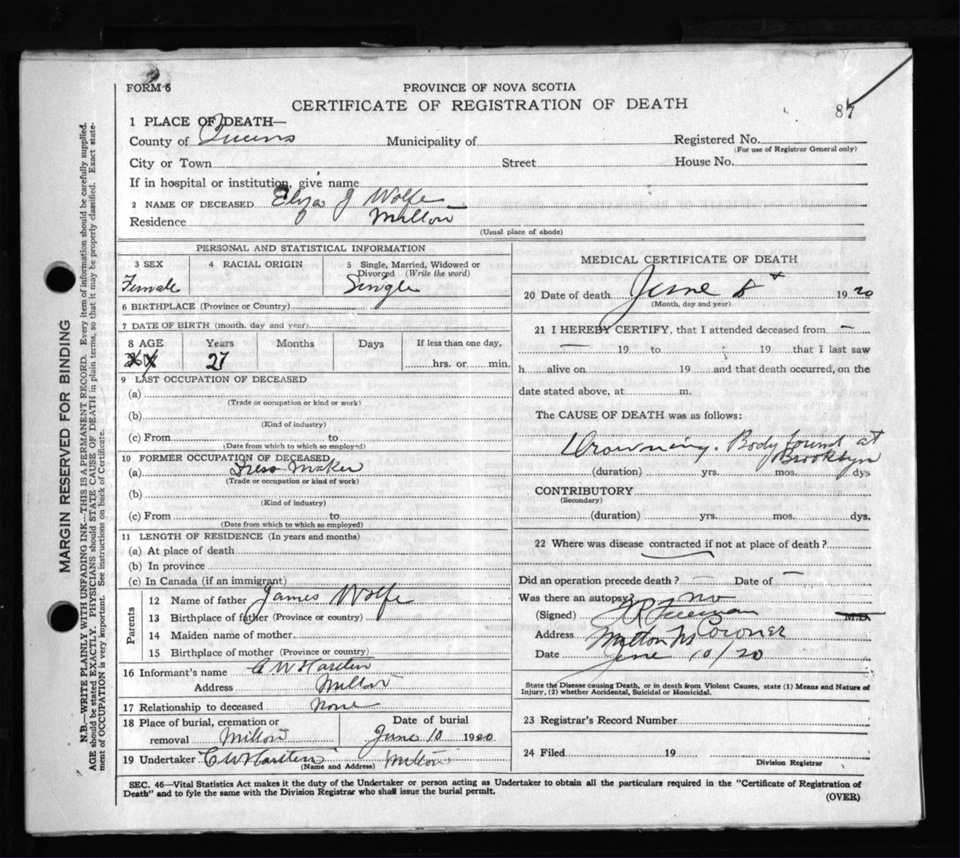 FORM 6
PROVINCE OF NOVA SCOTIA
CERTIFICATE OF REGISTRATION OF DEATH
87
1 PLACE OF DEATH—
County of Queens Municipality of Registered No.
(For use of Registrar General only)
City or Town Street House No.
If in hospital or institution, give name
2 NAME OF DECEASED Eliza J Wolfe
Residence Milton
(Usual place of abode)
PERSONAL AND STATISTICAL INFORMATION
3 SEX 4 RACIAL ORIGIN 5 Single, Married, Widowed or Divorced (Write the word)
Female Single
6 BIRTHPLACE (Province or Country)
7 DATE OF BIRTH (month, day and year)
8 AGE Years Months Days If less than one day,
27 hrs. or min.
9 LAST OCCUPATION OF DECEASED
(a)
(Trade or occupation or kind or work)
(b)
(Kind of industry)
(c) From to
(Date from which to which so employed)
10 FORMER OCCUPATION OF DECEASED
(a) Dress Maker
(Trade or occupation or kind of work)
(b)
(Kind of industry)
(c) From to
(Date from which to which so employed)
11 LENGTH OF RESIDENCE (In years and months)
(a) At place of death
(b) In province
(c) In Canada (if an immigrant)
Parents
12 Name of father James Wolfe
13 Birthplace of father (Province or country)
14 Maiden name of mother
15 Birthplace of mother (Province or country)
16 Informant's name C W
Address Milton
17 Relationship to deceased None
18 Place of burial, cremation or Date of burial
removal Milton June 10 1920
19 Undertaker C W Milton
(Name and Address)
MEDICAL CERTIFICATE OF DEATH
20 Date of death June 8 1920
(Month, day and year)
21 I HEREBY CERTIFY, that I attended deceased from —
— 19 to 19 that I last saw
h alive on 19 and that death occurred, on the
date stated above, at m.
The CAUSE OF DEATH was as follows:
Drowning. Body found at
Brooklyn
(duration) yrs. mos. dys.
CONTRIBUTORY
(Secondary)
(duration) yrs. mos. dys.
22 Where was disease contracted if not at place of death?
Did an operation precede death? — Date of —
Was there an autopsy? no
(Signed) Freeman M.D.
Address Milton NS Coroner
Date June 10/20
State the Disease causing Death, or in death from Violent Causes, state (1) Means and Nature of
Injury, (2) whether Accidental, Suicidal or Homicidal.
23 Registrar's Record Number
24 Filed 19
Division Registrar
SEC. 46—Vital Statistics Act makes it the duty of the Undertaker or person acting as Undertaker to obtain all the particulars required in the "Certificate of Registration of
Death" and to fyle the same with the Division Registrar who shall issue the burial permit.
(OVER)
MARGIN RESERVED FOR BINDING
N.B.—WRITE PLAINLY WITH UNFADING INK—THIS IS A PERMANENT RECORD. Every item of information should be carefully supplied.
AGE should be stated EXACTLY. PHYSICIANS should STATE CAUSE OF DEATH in plain terms, so that it may be properly classified. Exact state-
ment of OCCUPATION is very important. See instructions on back of Certificate.